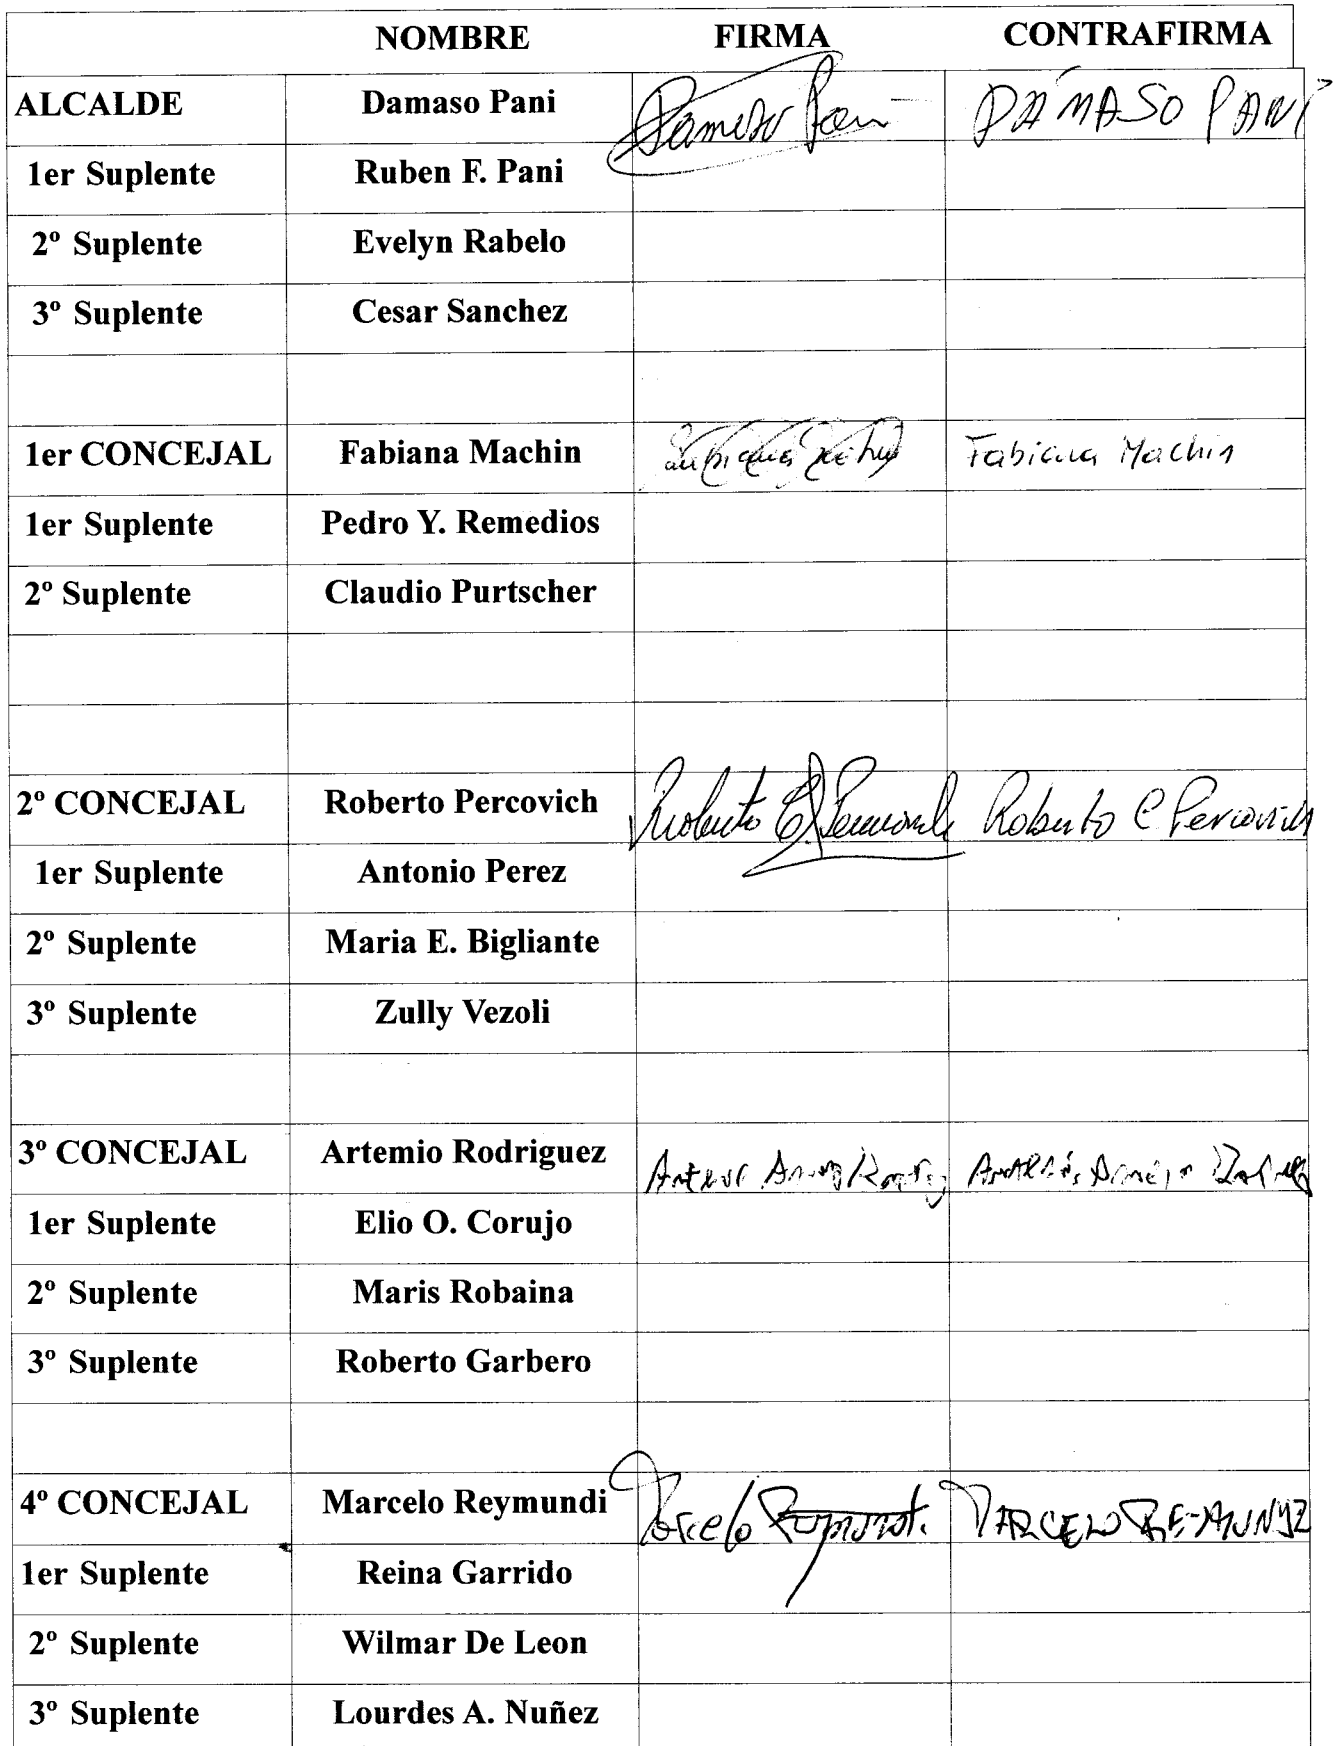 NOMBRE FIRMA CONTRAFIRMA
ALCALDE Damaso Pani Damaso Pani DÁMASO PANI
1er Suplente Ruben F. Pani
2º Suplente Evelyn Rabelo
3º Suplente Cesar Sanchez
1er CONCEJAL Fabiana Machin Fabiana Machin
1er Suplente Pedro Y. Remedios
2º Suplente Claudio Purtscher
2º CONCEJAL Roberto Percovich Roberto Roberto C Percovich
1er Suplente Antonio Perez
2º Suplente Maria E. Bigliante
3º Suplente Zully Vezoli
3º CONCEJAL Artemio Rodriguez
1er Suplente Elio O. Corujo
2º Suplente Maris Robaina
3º Suplente Roberto Garbero
4º CONCEJAL Marcelo Reymundi Marcelo MARCELO
1er Suplente Reina Garrido
2º Suplente Wilmar De Leon
3º Suplente Lourdes A. Nuñez